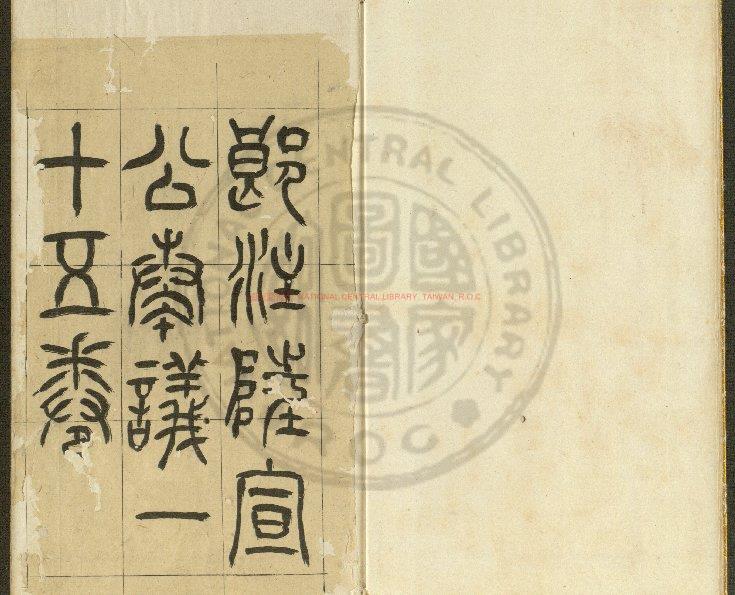 郎注陸宣
公奏議一
十五卷
NATIONAL CENTRAL LIBRARY, TAIWAN, R.O.C
NATIONAL CENTRAL LIBRARY
國家圖書館